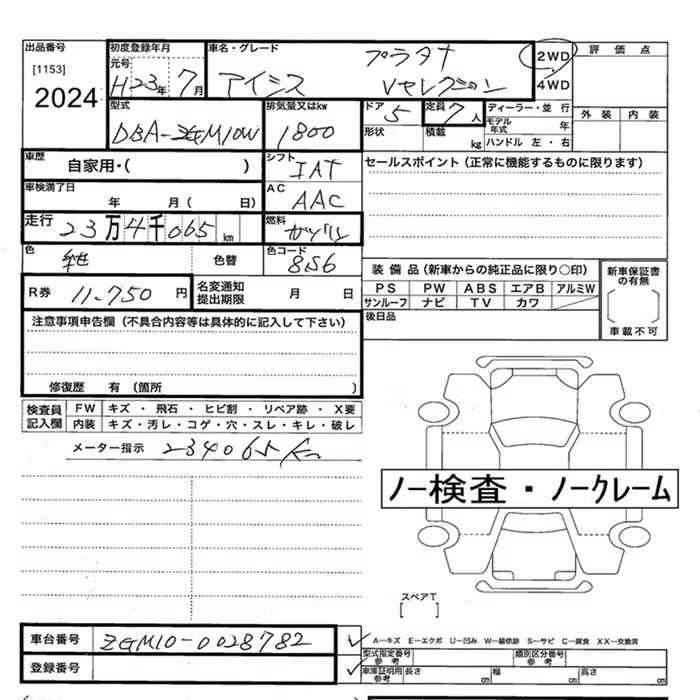 出品番号
[1153]
2024
初度登録年月
元号
H23年7月
車名・グレード
プラタナ
アイシス Vセレクション
2WD
4WD
評価点
外装 内装
型式
DBA-ZGM10W
排気量又はkw
1800
ドア 5
形状
定員 7人
積載 kg
ディーラー・並行
モデル年式 年
ハンドル 左・右
車歴
自家用・( )
シフト
IAT
セールスポイント(正常に機能するものに限ります)
車検満了日
年 月( 日)
AC
AAC
走行 23万4千065km
燃料
ガソリン
色
色替
色コード
8S6
R券 11-750円
名変通知
提出期限 月 日
装備品(新車からの純正品に限り〇印)
PS PW ABS エアB アルミW
サンルーフ ナビ TV カワ
新車保証書
の有無
車載不可
後日品
注意事項申告欄(不具合内容等は具体的に記入して下さい)
修復歴 有(箇所 )
検査員
記入欄
FW キズ・飛石・ヒビ割・リペア跡・X要
内装 キズ・汚レ・コゲ・穴・スレ・キレ・破レ
メーター指示 234065Km
ノー検査・ノークレーム
スペアT
[ ]
車台番号 ZGM10-0028782
登録番号
A―キズ E―エクボ U―凹み W―補修跡 S―サビ C―腐食 XX―交換済
型式指定番号
参考
類別区分番号
参考
車庫証明用
参考
長さ cm 幅 cm 高さ cm